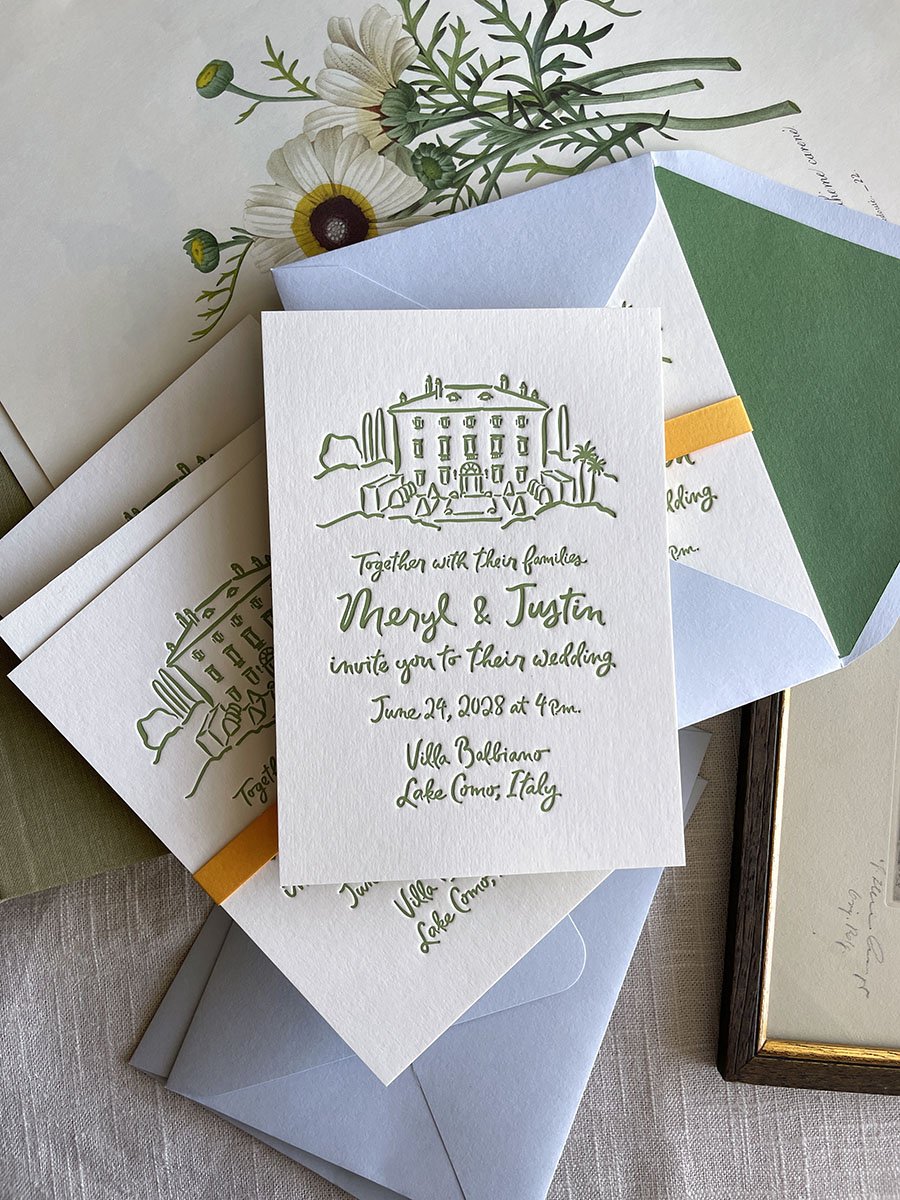 Together with their families
Meryl & Justin
invite you to their wedding
June 24, 2028 at 4 pm.
Villa Balbiano
Lake Como, Italy
wedding
pm.
Villa
Lake Como,